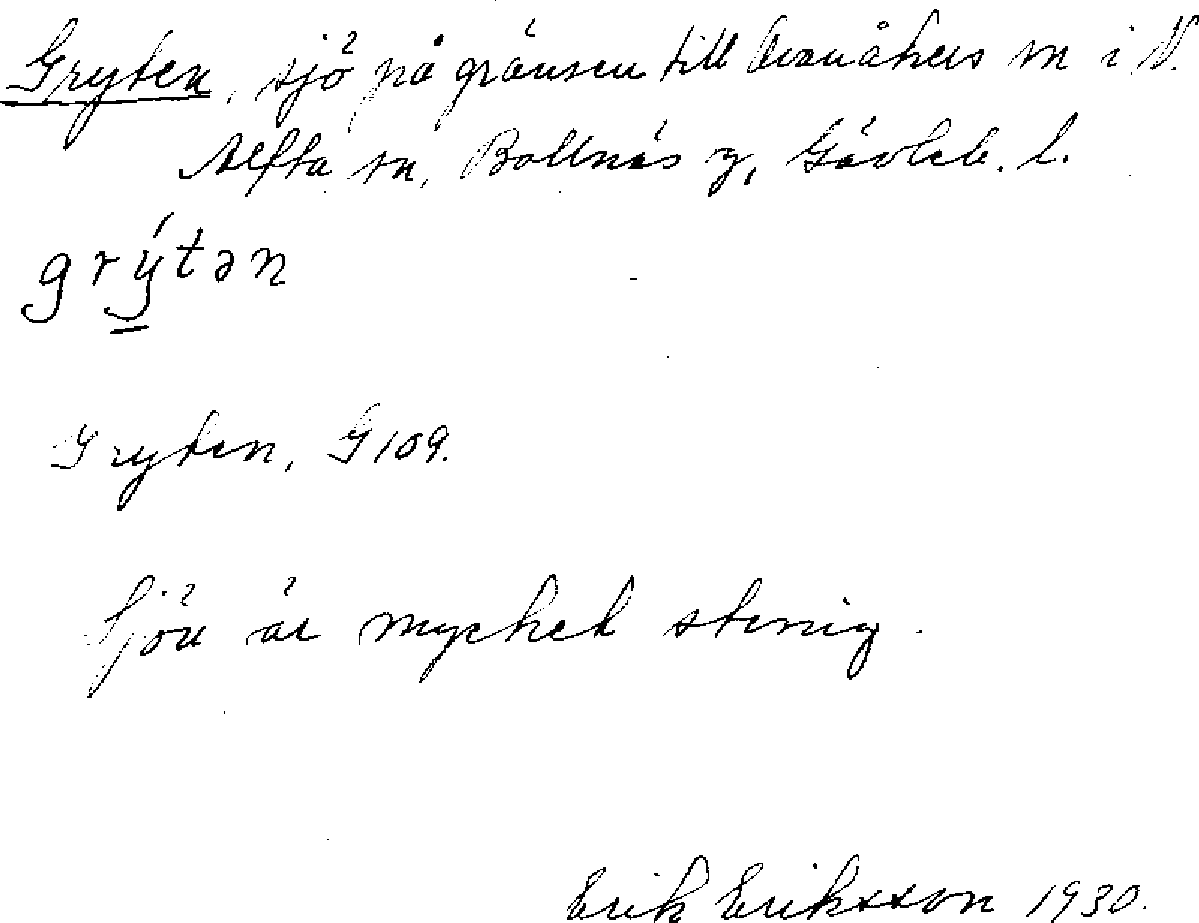 Gryten, sjö på gränsen till Ovanåkers sn i V.
Alfta sn, Bollnäs tg, Gävleb. l.
grý̱tən
Gryten, G 109.
Sjön är mycket stenig.
Erik Eriksson 1930.